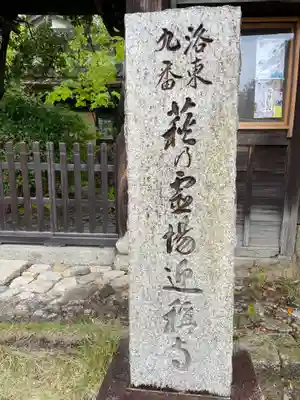 洛東
九番
萩乃霊場迎稱寺